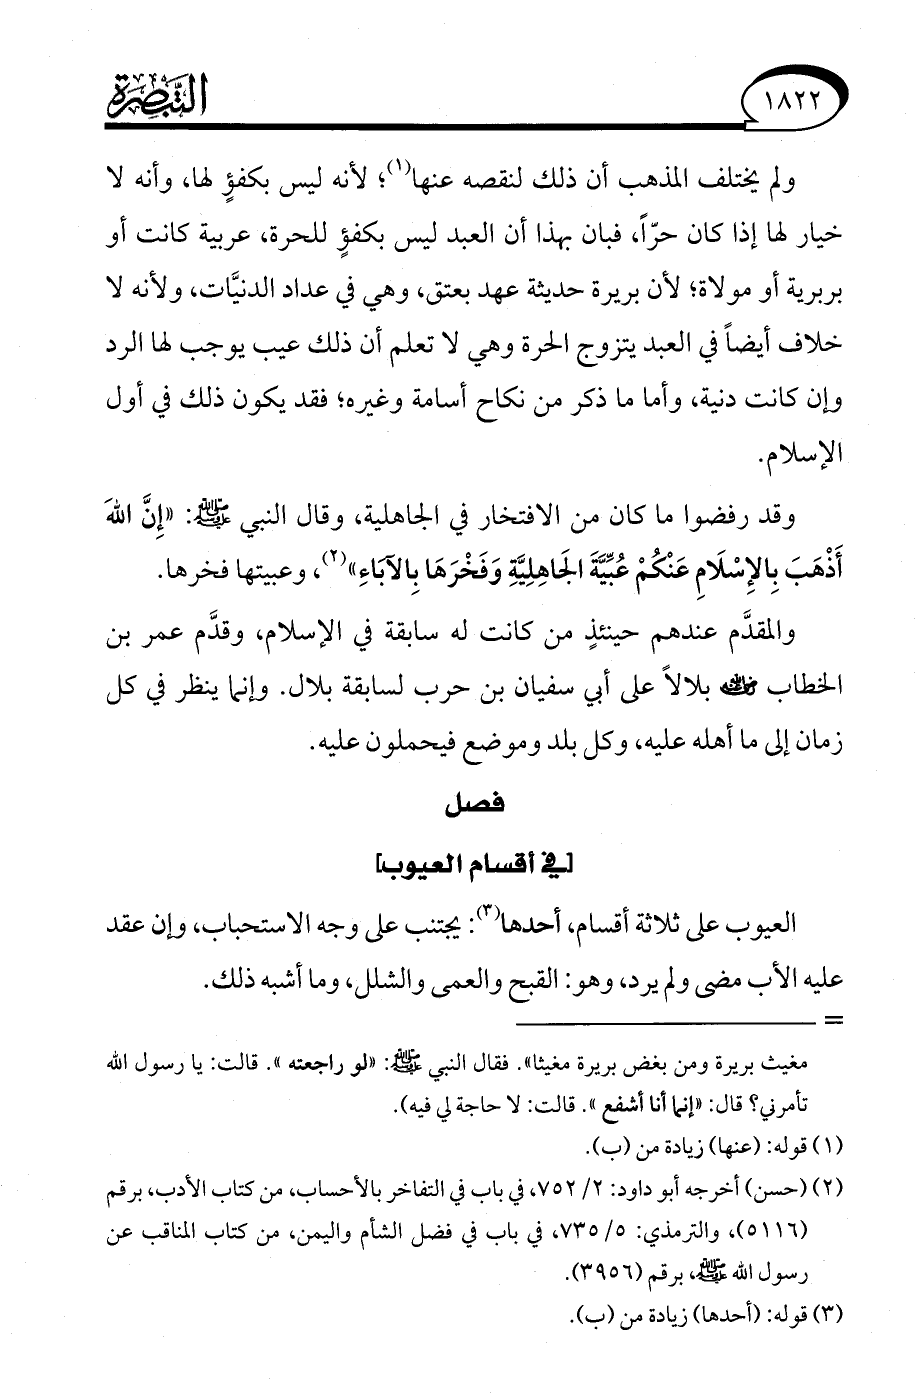 ١٨٢٢
التبصرة
ولم يختلف المذهب أن ذلك لنقصه عنها(١)؛ لأنه ليس بكفؤٍ لها، وأنه لا
خيار لها إذا كان حرّاً، فبان بهذا أن العبد ليس بكفؤٍ للحرة، عربية كانت أو
بربرية أو مولاة؛ لأن بريرة حديثة عهد بعتق، وهي في عداد الدنيَّات، ولأنه لا
خلاف أيضاً في العبد يتزوج الحرة وهي لا تعلم أن ذلك عيب يوجب لها الرد
وإن كانت دنية، وأما ما ذكر من نكاح أسامة وغيره؛ فقد يكون ذلك في أول
الإسلام.
وقد رفضوا ما كان من الافتخار في الجاهلية، وقال النبي ﷺ: «إِنَّ اللهَ
أَذْهَبَ بِالإِسْلَامِ عَنْكُمْ عُبِّيَّةَ الجَاهِلِيَّةِ وَفَخْرَهَا بِالآبَاءِ»(٢)، وعبيتها فخرها.
والمقدَّم عندهم حينئذٍ من كانت له سابقة في الإسلام، وقدَّم عمر بن
الخطاب رضي الله عنه بلالاً على أبي سفيان بن حرب لسابقة بلال. وإنما ينظر في كل
زمان إلى ما أهله عليه، وكل بلد وموضع فيحملون عليه.
فصل
[في أقسام العيوب]
العيوب على ثلاثة أقسام، أحدها(٣): يجتنب على وجه الاستحباب، وإن عقد
عليه الأب مضى ولم يرد، وهو: القبح والعمى والشلل، وما أشبه ذلك.
=
مغيث بريرة ومن بغض بريرة مغيثا». فقال النبي ﷺ: «لو راجعته ». قالت: يا رسول الله
تأمرني؟ قال: «إنما أنا أشفع ». قالت: لا حاجة لي فيه).
(١) قوله: (عنها) زيادة من (ب).
(٢) (حسن) أخرجه أبو داود: ٢/ ٧٥٢، في باب في التفاخر بالأحساب، من كتاب الأدب، برقم
(٥١١٦)، والترمذي: ٥/ ٧٣٥، في باب في فضل الشأم واليمن، من كتاب المناقب عن
رسول الله ﷺ، برقم (٣٩٥٦).
(٣) قوله: (أحدها) زيادة من (ب).